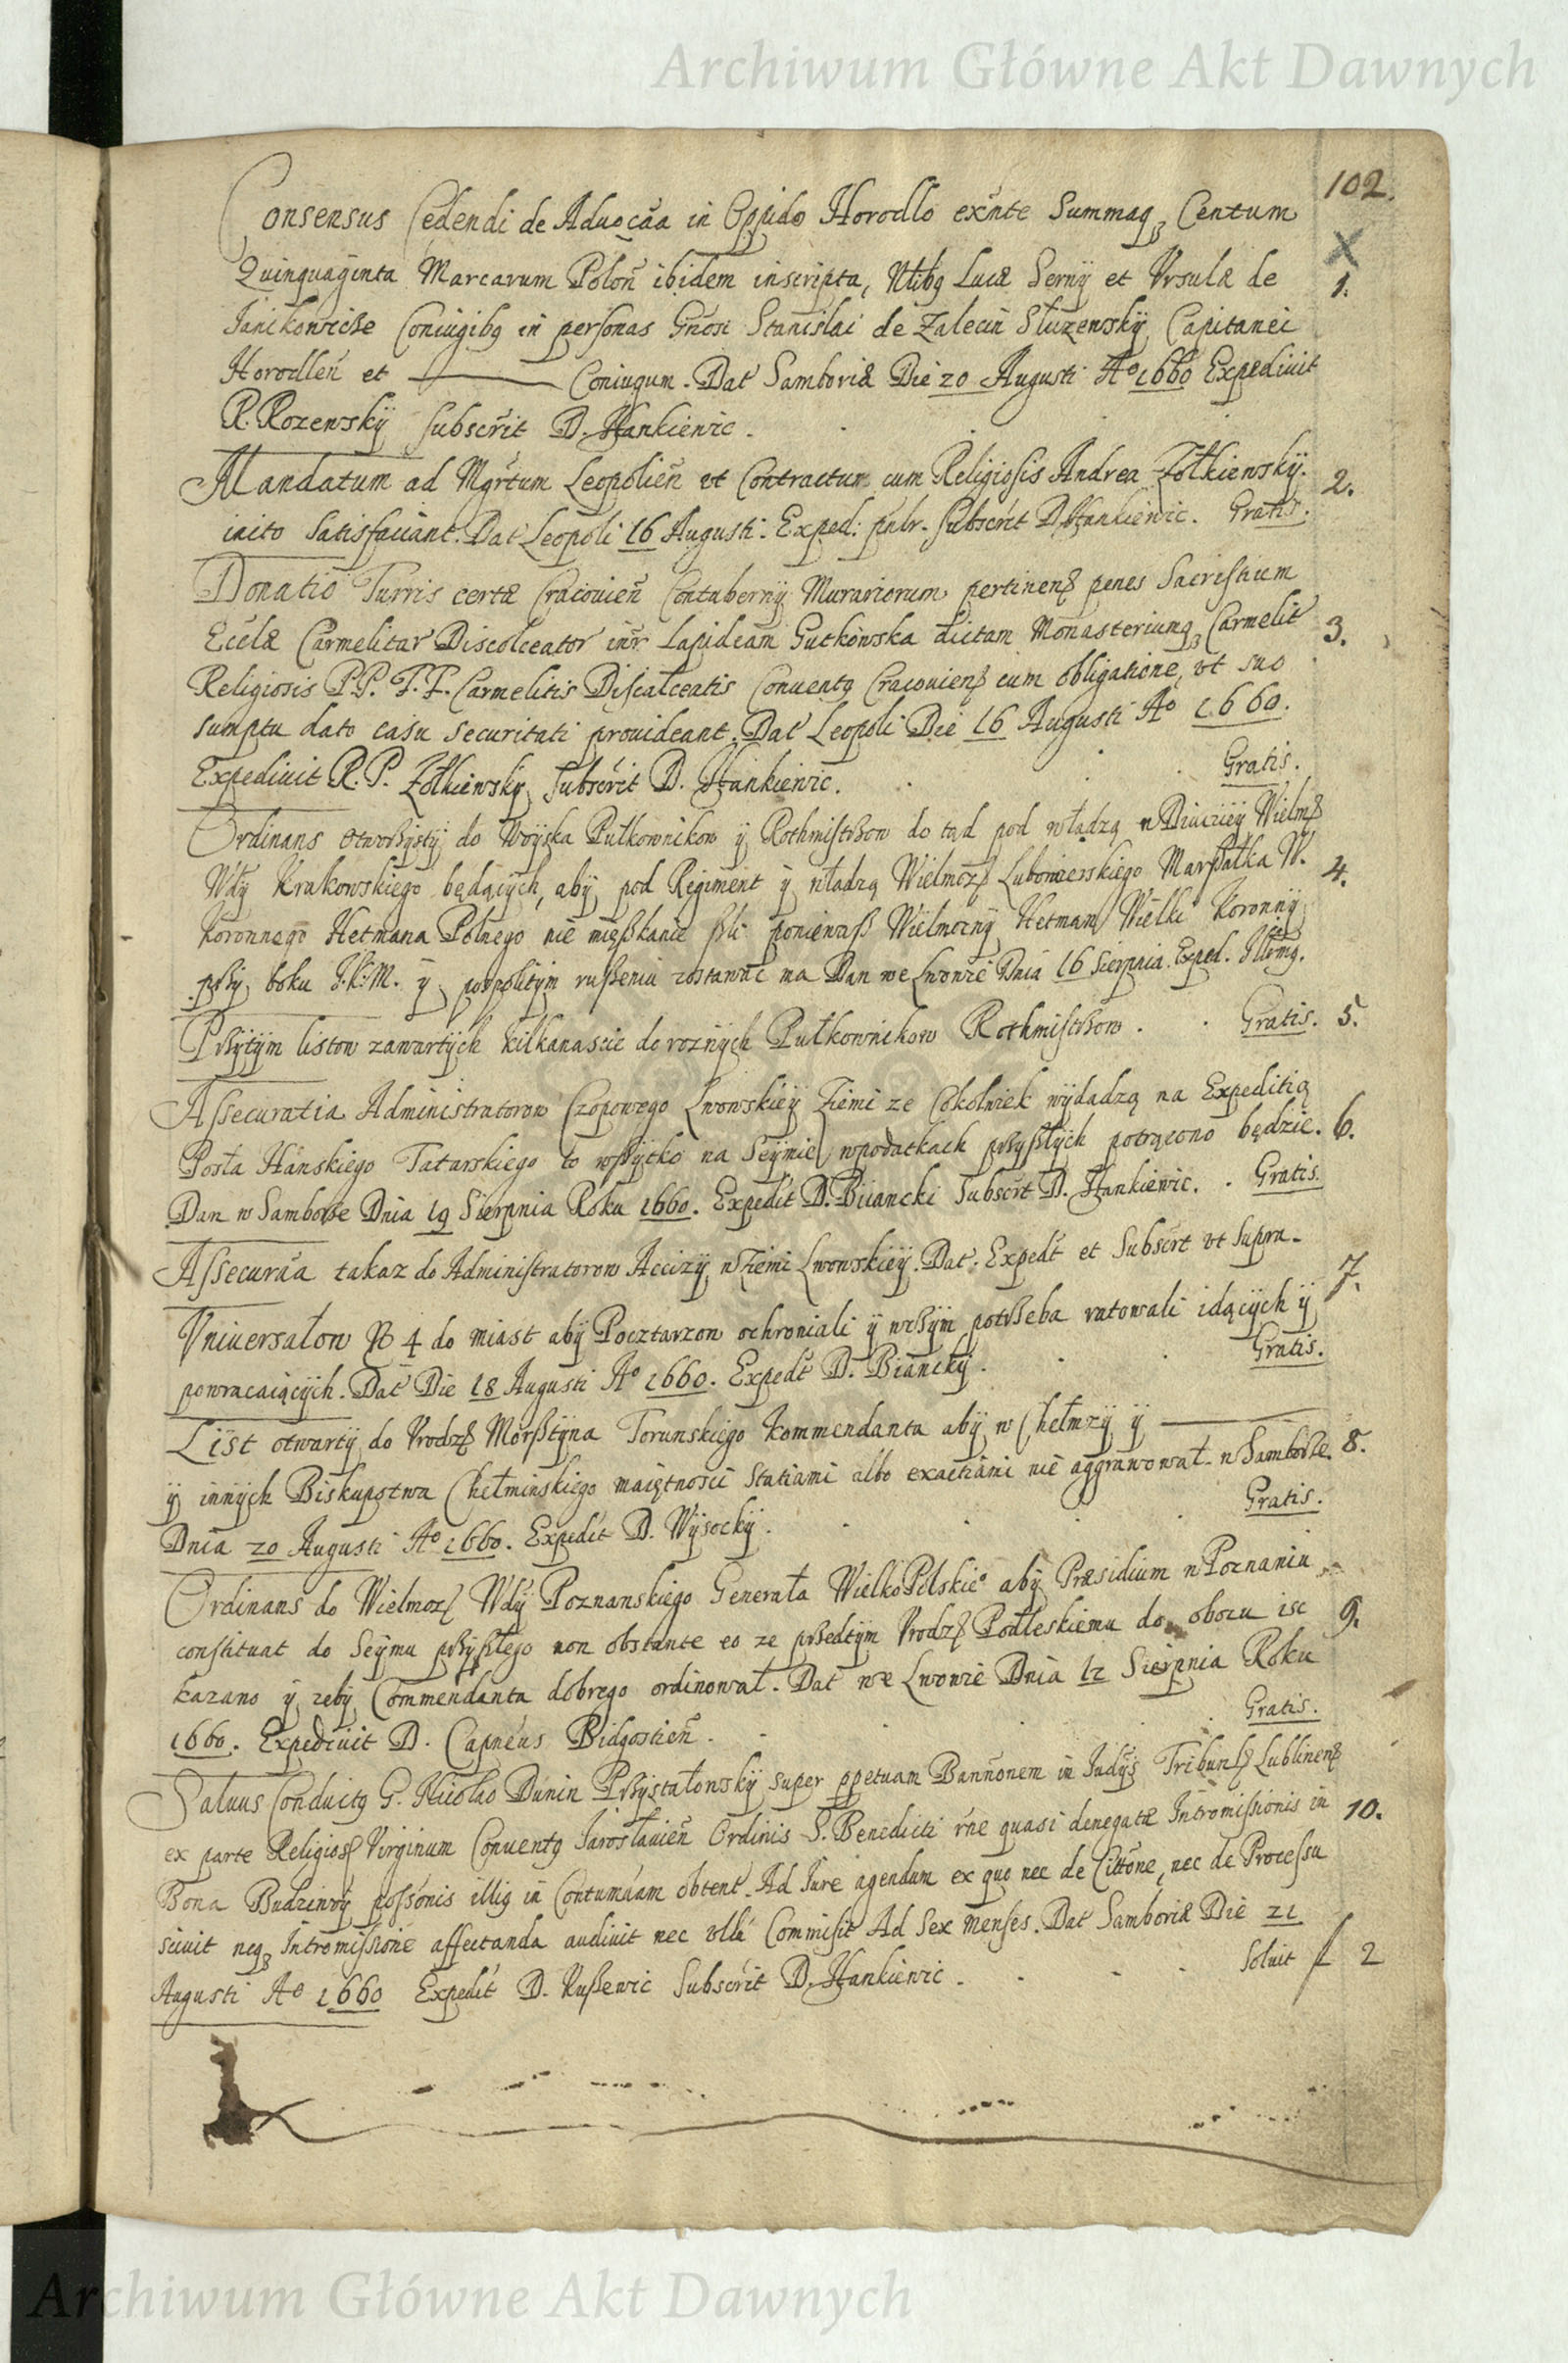 Archiwum Główne Akt Dawnych
102.
Consensus Cedendi de Aduocãa in Oppido Horodlo exñte Summaq₃ Centum
Quinquaginta Marcarum Poloñ ibidem inscripta, Ntibq Lucæ Serny et Vrsulæ de 1.
Coniugibq in personas Gñosi Stanislai de Zalecin Sluzewskÿ Capitanei
Horodleñ et ——— Coniugum. Dat Samboriæ Die 20 Augusti Aº 1660 Expediuit
R. Rozewskÿ subscrit D. Hankiewic.
Mandatum ad Mgrtum Leopolieñ vt Contractum cum Religiosis Andrea Zołkiewskÿ. 2.
inito satisfaciant. Dat Leopoli 16 Augusti. Exped: subscrit D. Hankiewic. Gratis.
Donatio Turris certæ Cracouieñ Contubernÿ Murariorum pertinenß penes Sacristium
Eccłæ Carmelitar Discolceator Lapideam Gutkowska dictam Monasteriumq₃ Carmelit 3.
Religiosis P.P. F.F. Carmelitis Discalceatis Conuentq Cracouienß cum obligatione, vt suo
sumptu dato casu securitati prouideant. Dat Leopoli Die 16 Augusti Aº 1660.
Expediuit R. P. Zołkiewsky Subscrit D. Hankiewic. Gratis.
Ordinans otworzÿstÿ do Woÿska Pułkownikow ÿ Rothmistrzow do tąd pod władzą w Diuiziey Wielmß
Wdÿ Krakowskiego będącÿch, abÿ pod Regiment ÿ władzą Wielmozß Lubomierskiego Marszałka W. 4.
Koronnego Hetmana Polnego nie mięszkanie szli poniewasz Wielmoznÿ Hetman Wielki Koronnÿ
przÿ boku J.K.M. ÿ pospolitÿm ruszeniu zostawac ma Dan we Lwowie Dnia 16 Sierpnia. Exped.
Przÿtÿm listow zawartÿch kilkanascie do roznÿch Pułkownikow Rothmistrzow. Gratis. 5.
Assecuratia Administratorow Czopowego Lwowskiey Ziemi ze Cokolwiek wÿdadzą na Expeditią
Posła Hanskiego Tatarskiego to wszÿtko na Seÿmie w podatkach przÿszłÿch potrącono będzie. 6.
Dan w Samborze Dnia 19 Sierpnia Roku 1660. Expedit D. Biiancki Subscrt D. Hankiewic. Gratis.
Assecurãa takaz do Administratorow Accizÿ w Ziemi Lwowskieÿ. Dat. Expedt et Subscrt vt supra. 7.
Vniuersałow N 4 do miast abÿ Pocztarzow ochroniali ÿ wczÿm potrzeba ratowali idącÿch ÿ
powracaiącÿch. Dat Die 18 Augusti Aº 1660. Expedt D. Bianckÿ. Gratis.
List otwartÿ do Vrodzß Morsztÿna Torunskiego Kommendanta abÿ w Chełmzÿ ÿ ——— 8.
ÿ innÿch Biskupstwa Chełminskiego maiętnosci Statiami albo exactiami nie aggrawował. w Samborze.
Dnia 20 Augusti Aº 1660. Expedit D. Wÿsockÿ. Gratis.
Ordinans do Wielmozß Wdÿ Poznanskiego Generała WielkoPolskieº abÿ Præsidium w Poznaniu
constituat do Seÿmu przÿszłego non obstante eo ze przedtÿm Vrodzß Podleskiemu do obozu isc 9.
kazano ÿ zebÿ Commendanta dobrego ordinował. Dat we Lwowie Dnia 12 Sierpnia Roku
1660. Expediuit D. Capneus Bidgostieñ. Gratis.
Saluus Conductq G. Nicolao Dunin Przÿstałowskÿ super ppetuam Bannõnem in Judÿs Tribunlß Lublinenß
ex parte Religiosß Virginum Conuentq Jarosłauieñ Ordinis S. Benedicti rñe quasi denegatæ Intromissionis in 10.
Bona Budziwoÿ possõnis illiq in Contumãam obtent. Ad Jure agendum ex quo nec de Cittõne, nec de Processu
sciuit neq₃ Intromissione affectanda audiuit nec vlla Commisit Ad Sex Menses. Dat Samboriæ Die 21
Augusti Aº 1660 Expedit D. Kuszewic Subscrit D. Hankiewic. Soluit f 2
Archiwum Główne Akt Dawnych